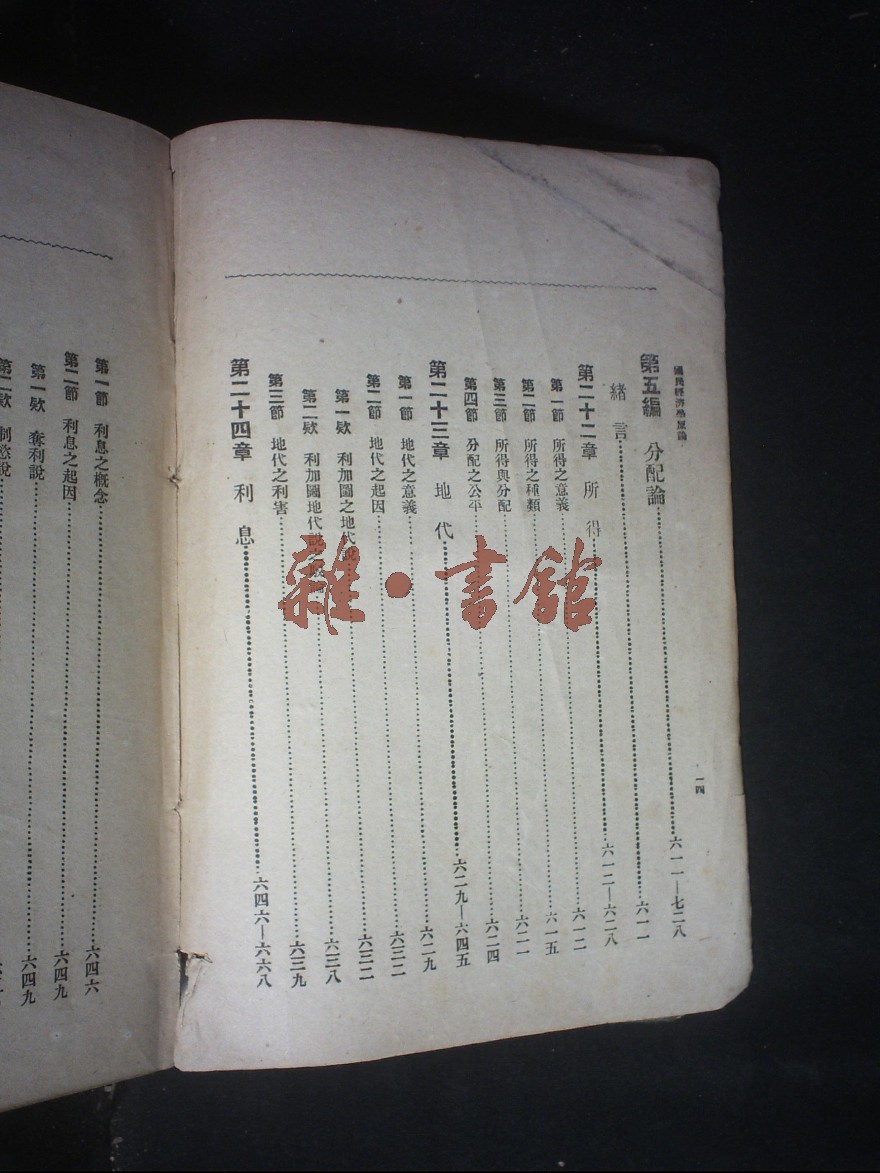 國民經濟學原論
一四
第五編 分配論……六一一—七二八
緒言……六一一
第二十二章 所得……六一二—六二八
第一節 所得之意義……六一二
第二節 所得之種類……六一五
第三節 所得與分配……六二一
第四節 分配之公平……六二四
第二十三章 地代……六二九—六四五
第一節 地代之意義……六二九
第二節 地代之起因……六三二
第一欵 利加圖之地代說……六三二
第二欵 利加圖地代說之……六三八
第三節 地代之利害……六三九
第二十四章 利息……六四六—六六八
第一節 利息之概念……六四六
第二節 利息之起因……六四九
第一欵 奪利說……六四九
第二欵 制慾說
雜·書館